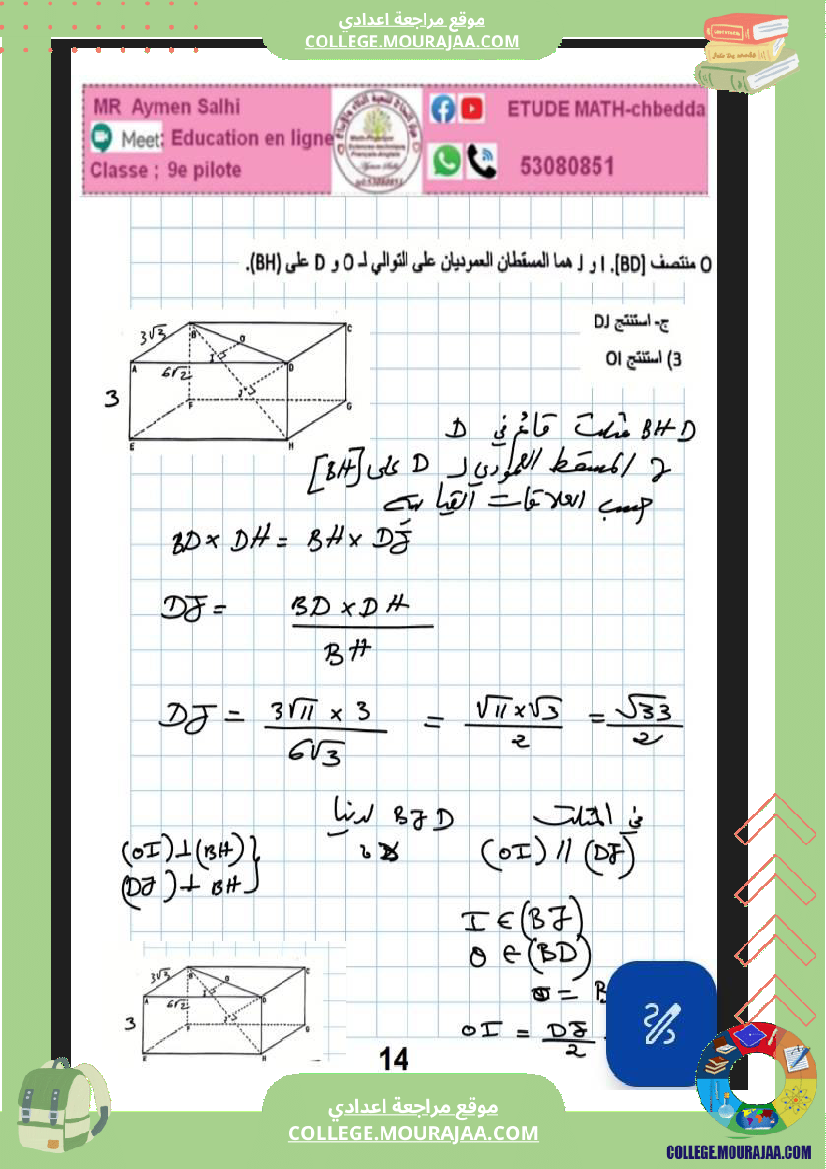 موقع مراجعة اعدادي
COLLEGE.MOURAJAA.COM
MR Aymen Salhi
Meet: Education en ligne
Classe ; 9e pilote
ETUDE MATH-chbedda
53080851
O منتصف [BD]. I و J هما المسقطان العموديان على التوالي لـ O و D على (BH).
ج- استنتج DJ
3) استنتج OI
3√3
6√2
3
A B C D E F G H O I J
BHD مثلث قائم في D
J المسقط العمودي لـ D على [BH]
حسب العلاقات القياسية
BD × DH = BH × DJ
DJ = BD × DH / BH
DJ = 3√11 × 3 / 6√3 = √11 × √3 / 2 = √33 / 2
في المثلث BJD لدينا
(OI) // (DJ)
(OI) ⊥ (BH)
(DJ) ⊥ BH
I ∈ (BJ)
O ∈ (BD)
OI = DJ / 2
3√3
6√2
3
A B C D E F G H O I J
14
موقع مراجعة اعدادي
COLLEGE.MOURAJAA.COM
COLLEGE.MOURAJAA.COM